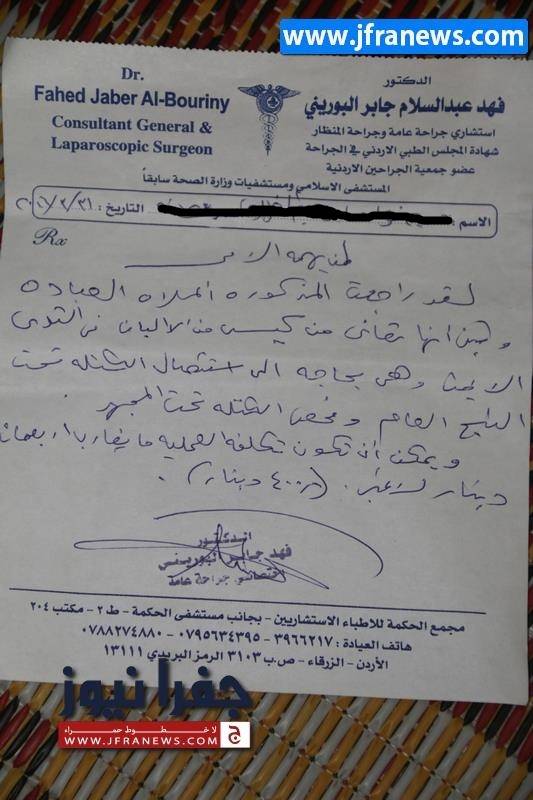 www.jfranews.com
Dr.
Fahed Jaber Al-Bouriny
Consultant General &
Laparoscopic Surgeon
الدكتور
فهد عبدالسلام جابر البوريني
استشاري جراحة عامة وجراحة المنظار
شهادة المجلس الطبي الاردني في الجراحة
عضو جمعية الجراحين الاردنية
المستشفى الاسلامي ومستشفيات وزارة الصحة سابقاً
الاسم : التاريخ :
Rx
لمن يهمه الامر
لقد راجعت المذكوره اعلاه العياده
وتبين انها تعاني من كيس من الالبان في الثدي
الايمن وهي بحاجه الى استئصال الكتله تحت
البنج العام وفحص الكتله تحت المجهر
ويمكن أن تكون تكلفة العمليه ما يقارب اربعمائة
دينار لا غير. (٤٠٠ دينار).
الدكتور
فهد جابر البوريني
اخصائي جراحة عامة
مجمع الحكمة للاطباء الاستشاريين - بجانب مستشفى الحكمة - ط٢ - مكتب ٢٠٤
هاتف العيادة : ٣٩٦٦٢١٧ - ٠٧٩٥٦٣٤٣٩٥ - ٠٧٨٨٢٧٤٨٨٠
الأردن - الزرقاء - ص.ب ٣١٠٣ الرمز البريدي ١٣١١١
جفرا نيوز
لا خطوط حمراء
WWW.JFRANEWS.COM